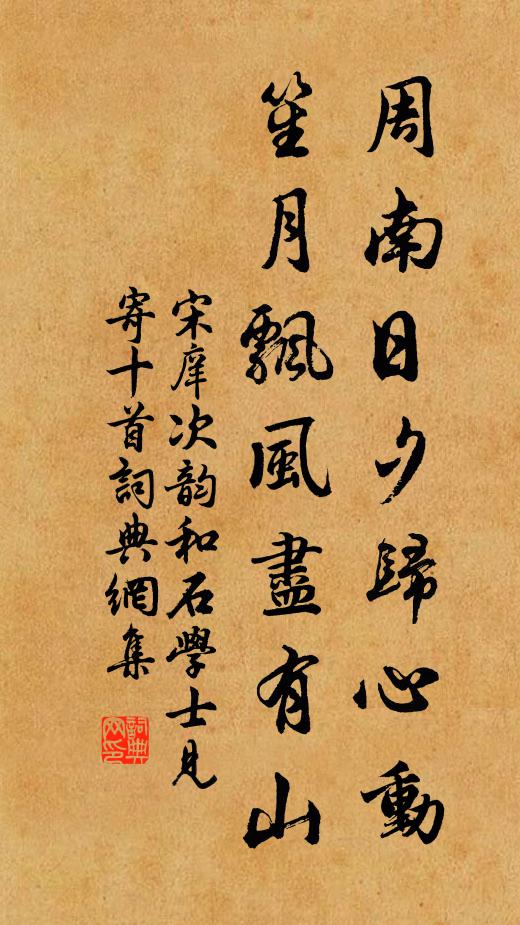 周南日夕歸心動
笙月飄風盡有山
宋庠次韵和石學士見
寄十首詞典網集
詞典
网印